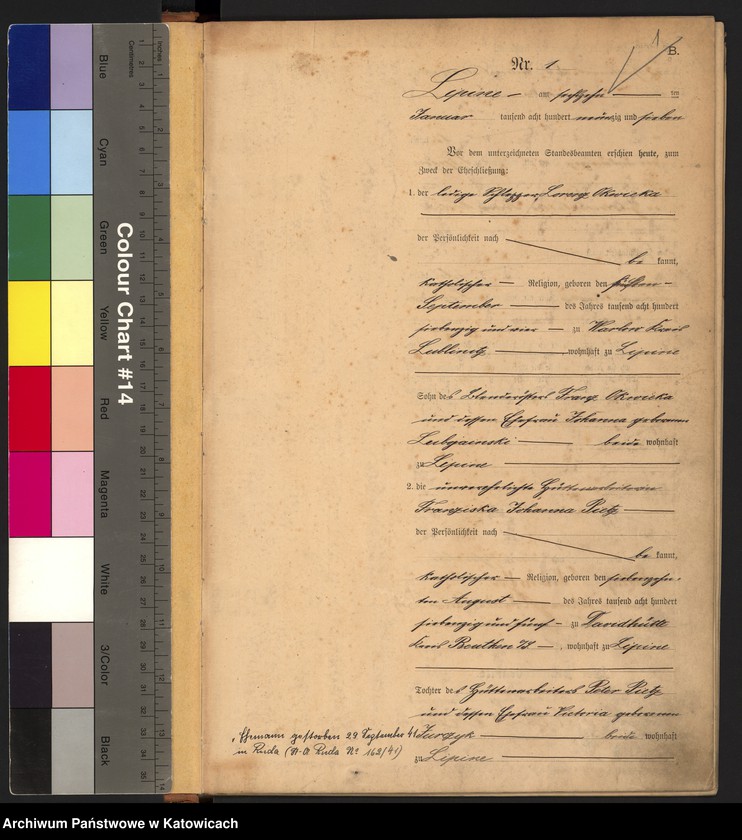 1
B.
Nr. 1
Lipine am sechszehn ten
Januar tausend acht hundert neunzig und sieben
Vor dem unterzeichneten Standesbeamten erschien heute, zum
Zweck der Eheschließung:
1. der ledige Schlepper, Okwieka
der Persönlichkeit nach
be kannt,
katholischer Religion, geboren den
September des Jahres tausend acht hundert
siebenzig und vier zu Kreis
Lublinitz, wohnhaft zu Lipine
Sohn des Franz Okwieka
und dessen Ehefrau Johanna geborenen
beide wohnhaft
zu Lipine
2. die unverehelichte Hüttenarbeiterin
Franziska Johanna Pietz
der Persönlichkeit nach
be kannt,
katholischer Religion, geboren den siebenzehn-
ten August des Jahres tausend acht hundert
siebenzig und fünf zu Davidhütte
Kreis Beuthen, wohnhaft zu Lipine
Tochter des Hüttenarbeiters Peter Pietz
und dessen Ehefrau Victoria geborenen
Jurczyk beide wohnhaft
zu Lipine
Ehemann gestorben 29 September 41
in Ruda (St. A Ruda Nº 162/41)
Colour Chart #14
Blue
Cyan
Green
Yellow
Red
Magenta
White
3/Color
Black
Inches
Centimetres
Archiwum Państwowe w Katowicach